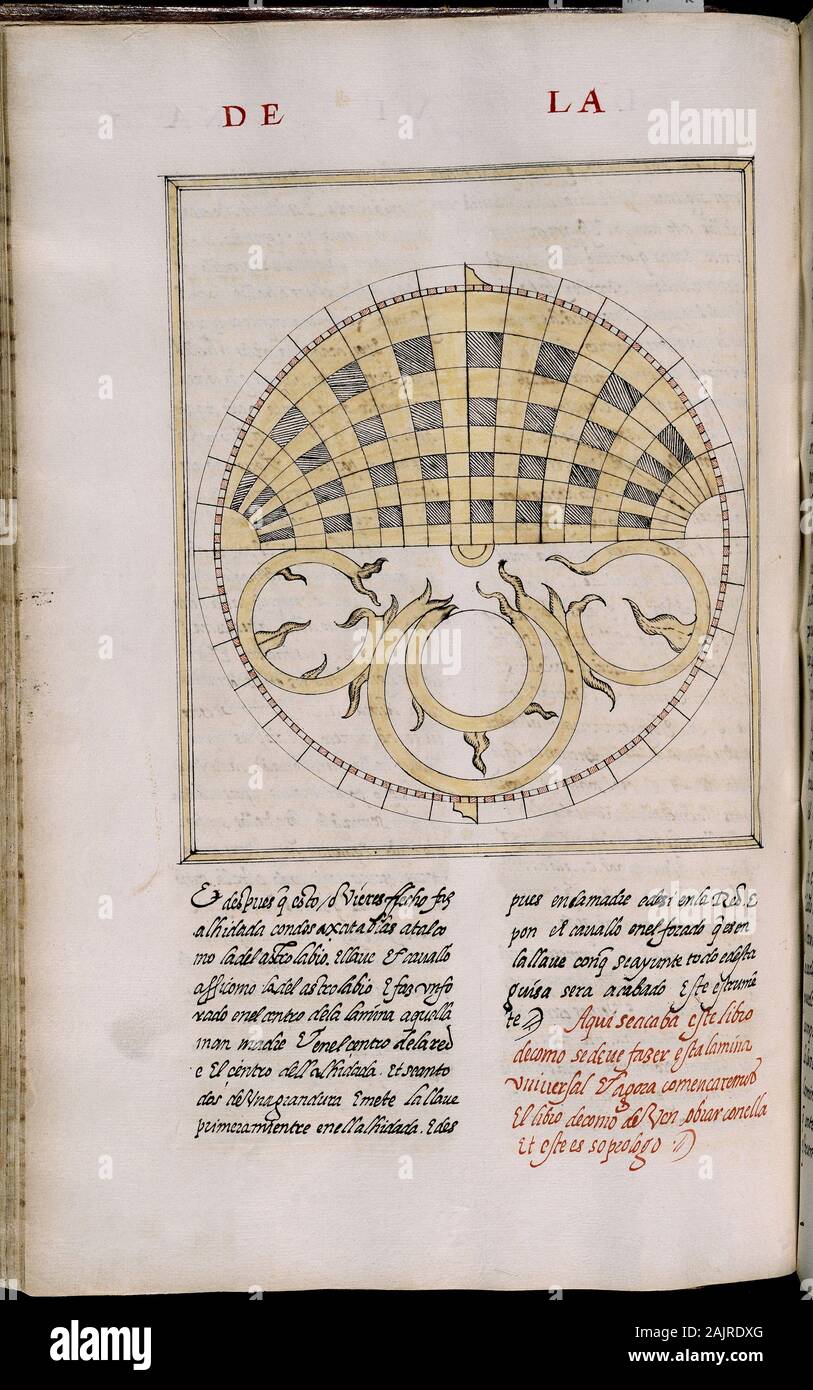 DE LA
Et despues q esto ovieres fecho faz
alhidada con dos axatabas atal co
mo la del astrolabio. E llave Et cavallo
assi como la del astrolabio E faz un fo
rado en el centro dela lamina aquella
man madre Et en el centro dela red
e El centro dell alhidada. Et sean to
dos de Una grandura E mete la llave
primeramientre en ell alhidada. E des
pues en la madre e desi en la Red. E
pon el cavallo en el forado q es en
la llave con q se ayunte todo e desta
guisa sera acabado Este estrumẽ
te
Aqui se acaba este libro
de como se deve fazer esta lamina
Universal Et agora començaremos
El libro de como deven obrar con ella
Et este es so prologo
alamy
Image ID: 2AJRDXG
www.alamy.com